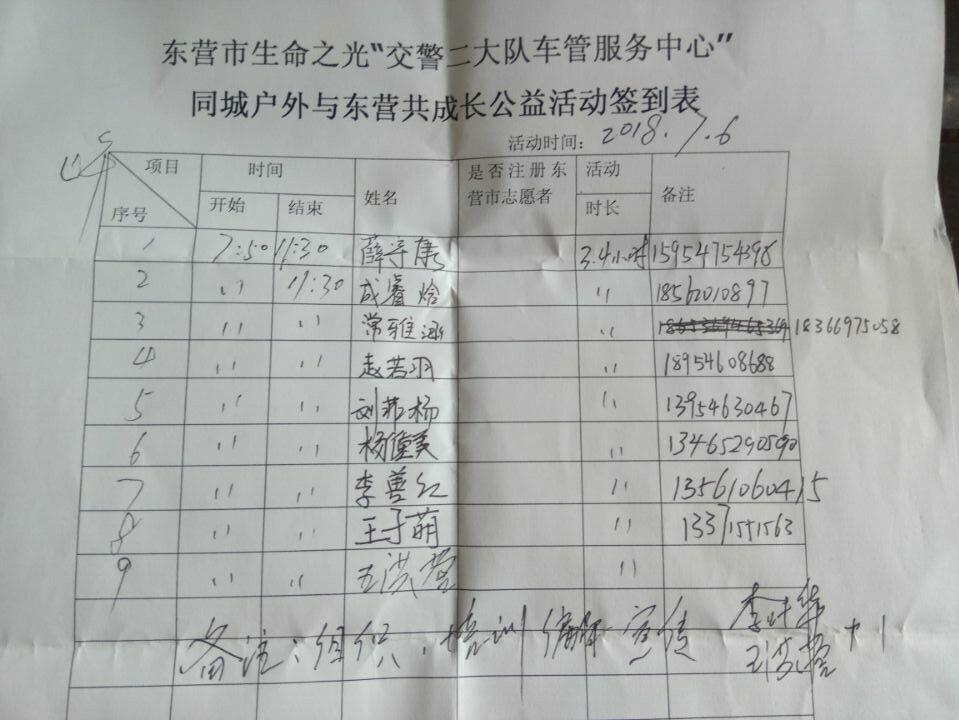 东营市生命之光“交警二大队车管服务中心”
同城户外与东营共成长公益活动签到表
活动时间：2018.7.6
项目 时间 姓名 是否注册东营市志愿者 活动时长 备注
序号 开始 结束
1 7:50 11:30 薛守康 3.4小时 15954754398
2 〃 11:30 成睿焓 〃 18562010897
3 〃 〃 常雅涵 〃 18366975058
4 〃 〃 赵若羽 〃 18954608688
5 〃 〃 刘菲杨 〃 13954630467
6 〃 〃 杨 〃 13465290590
7 〃 〃 李善红 〃 13561060415
8 〃 〃 王子萌 〃 13371551563
9 〃 〃 王洪营 〃
备注：组织、培训 编辑 宣传 李 王洪营 +1